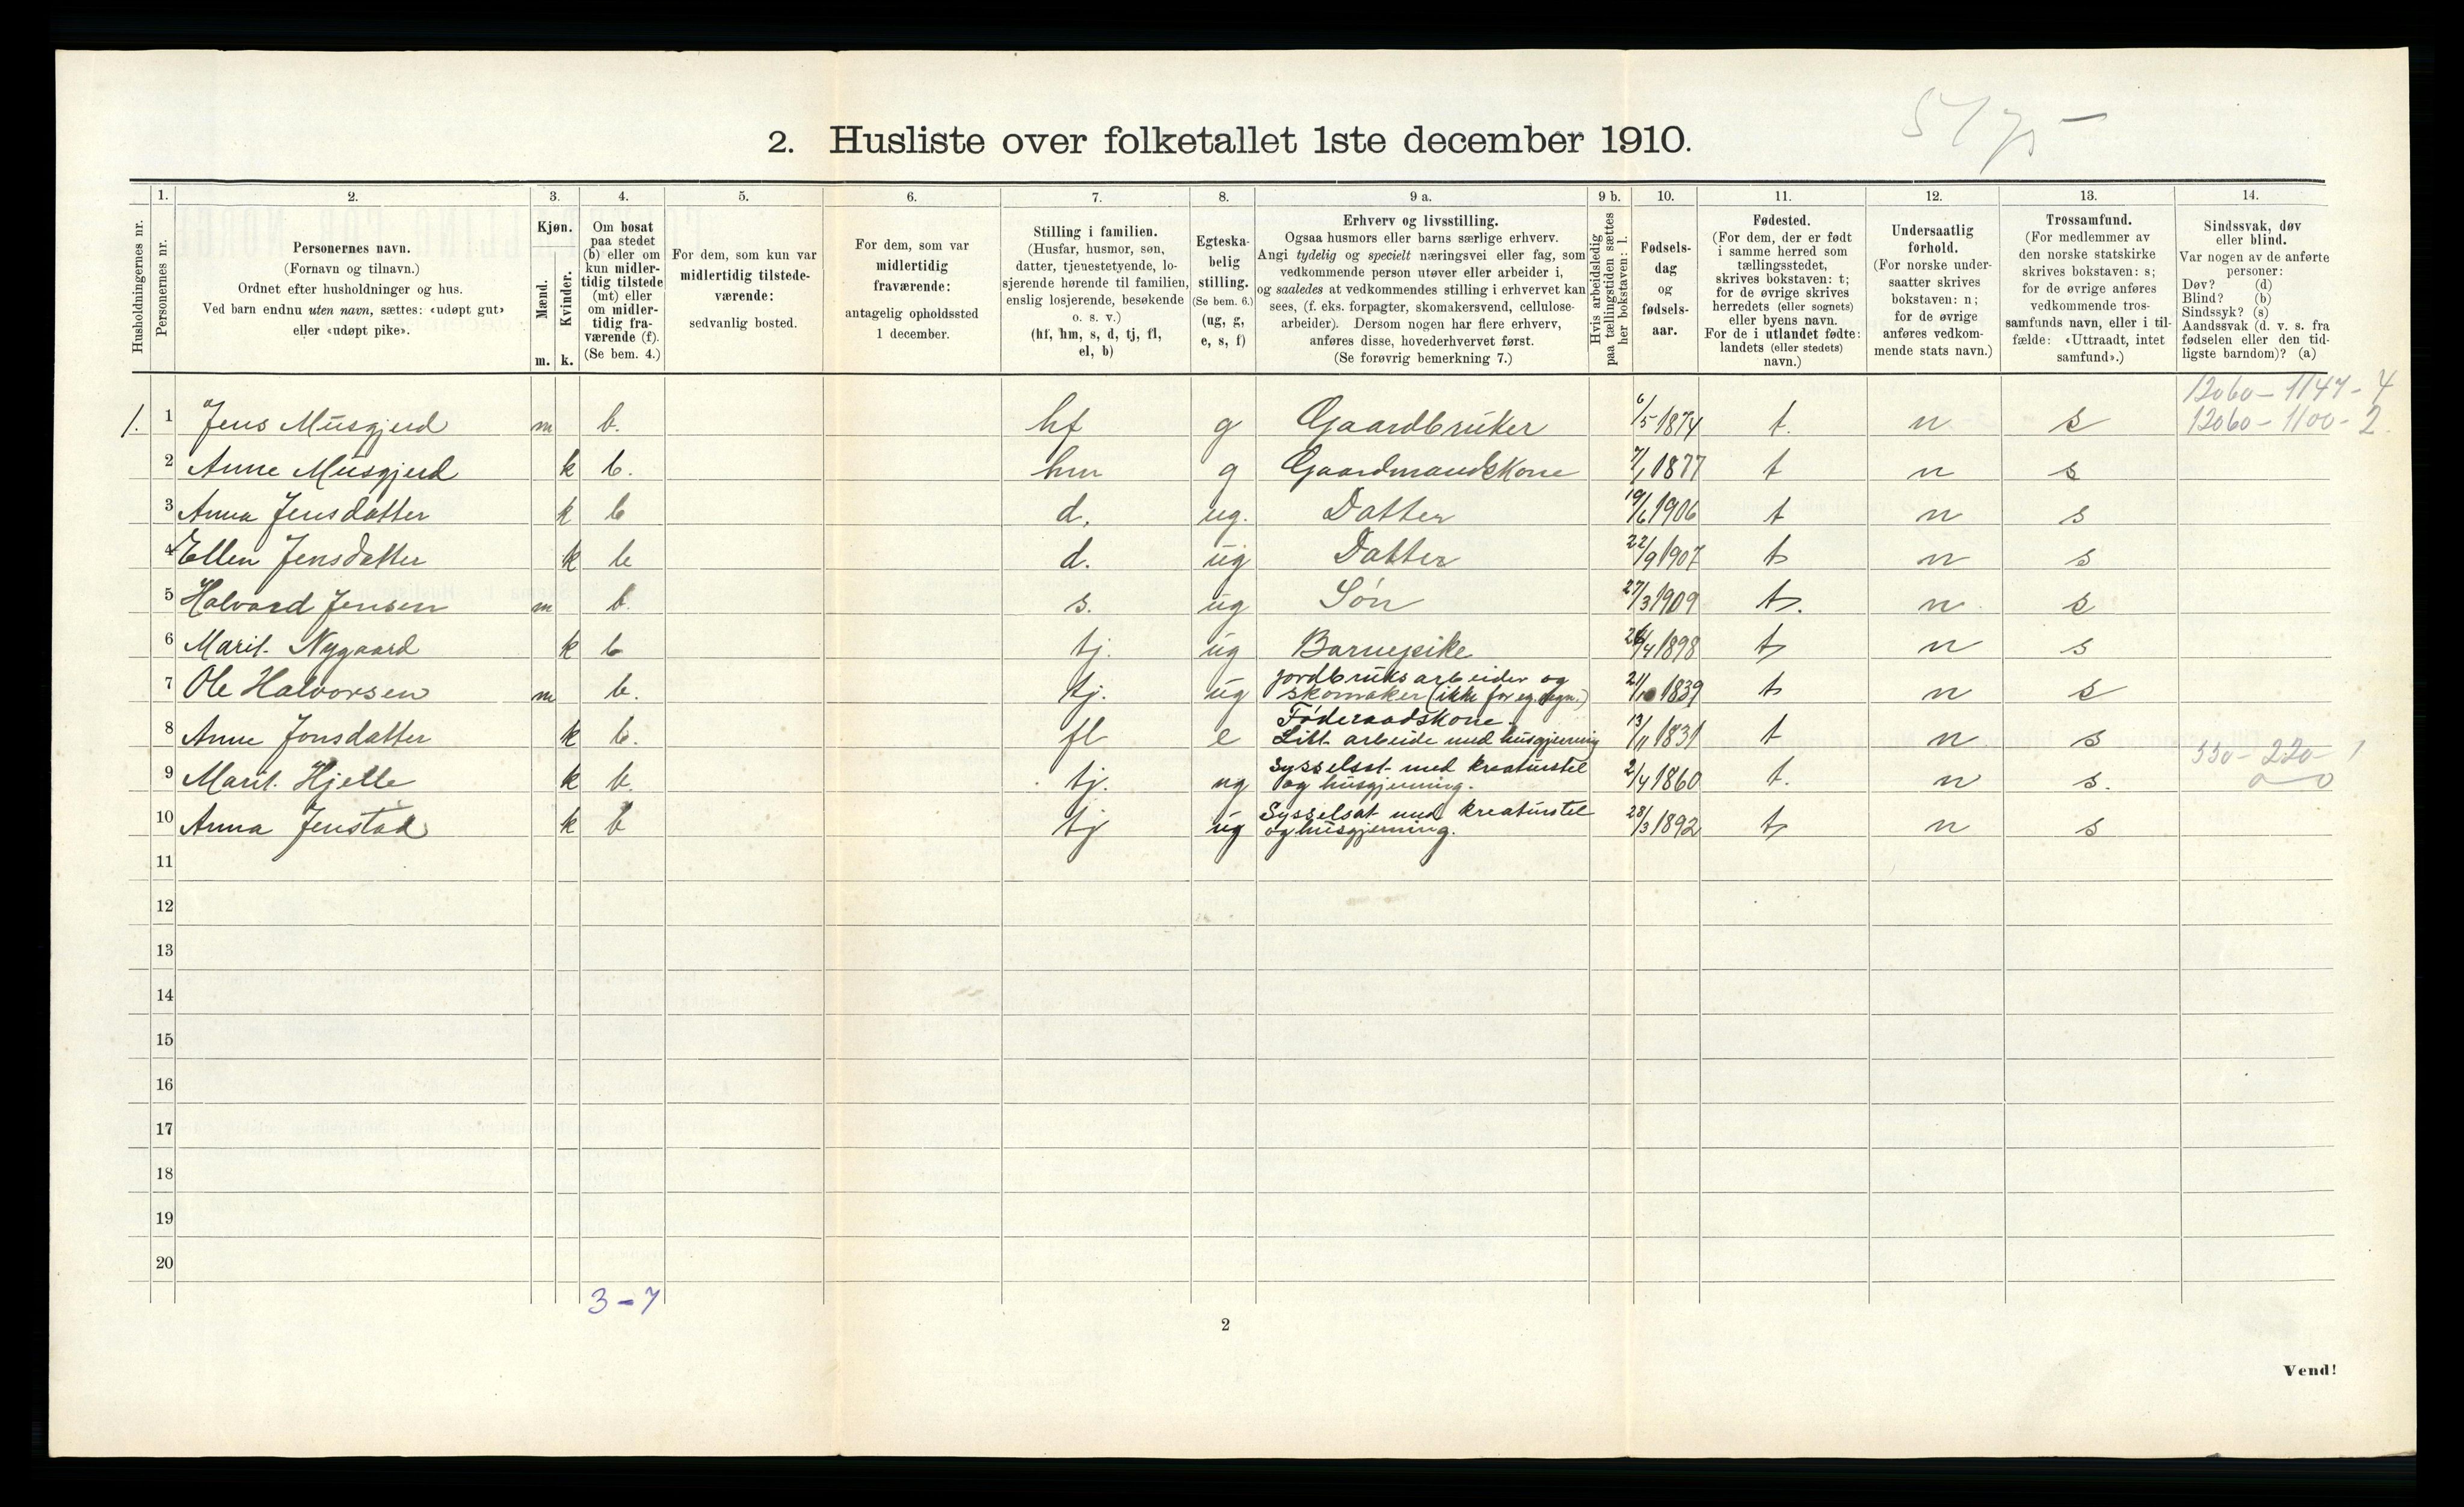 2. Husliste over folketallet 1ste december 1910.
1. 2. 3. 4. 5. 6. 7. 8. 9 a. 9 b. 10. 11. 12. 13. 14.
Husholdningernes nr.
Personernes nr.
Personernes navn.
(Fornavn og tilnavn.)
Ordnet efter husholdninger og hus.
Ved barn endnu uten navn, sættes: «udøpt gut»
eller «udøpt pike».
Kjøn.
Mænd.
Kvinder.
m. k.
Om bosat
paa stedet
(b) eller om
kun midler-
tidig tilstede
(mt) eller
om midler-
tidig fra-
værende (f).
(Se bem. 4.)
For dem, som kun var
midlertidig tilstede-
værende:
sedvanlig bosted.
For dem, som var
midlertidig
fraværende:
antagelig opholdssted
1 december.
Stilling i familien.
(Husfar, husmor, søn,
datter, tjenestetyende, lo-
sjerende hørende til familien,
enslig losjerende, besøkende
o. s. v.)
(hf, hm, s, d, tj, fl,
el, b)
Egteska-
belig
stilling.
(Se bem. 6.)
(ug, g,
e, s, f)
Erhverv og livsstilling.
Ogsaa husmors eller barns særlige erhverv.
Angi tydelig og specielt næringsvei eller fag, som
vedkommende person utøver eller arbeider i,
og saaledes at vedkommendes stilling i erhvervet kan
sees, (f. eks. forpagter, skomakersvend, cellulose-
arbeider). Dersom nogen har flere erhverv,
anføres disse, hovederhvervet først.
(Se forøvrig bemerkning 7.)
Hvis arbeidsledig
paa tællingstiden sættes
her bokstaven: l.
Fødsels-
dag
og
fødsels-
aar.
Fødested.
(For dem, der er født
i samme herred som
tællingsstedet,
skrives bokstaven: t;
for de øvrige skrives
herredets (eller sognets)
eller byens navn.
For de i utlandet fødte:
landets (eller stedets)
navn.)
Undersaatlig
forhold.
(For norske under-
saatter skrives
bokstaven: n;
for de øvrige
anføres vedkom-
mende stats navn.)
Trossamfund.
(For medlemmer av
den norske statskirke
skrives bokstaven: s;
for de øvrige anføres
vedkommende tros-
samfunds navn, eller i til-
fælde: «Uttraadt, intet
samfund».)
Sindssvak, døv
eller blind.
Var nogen av de anførte
personer:
Døv? (d)
Blind? (b)
Sindssyk? (s)
Aandssvak (d. v. s. fra
fødselen eller den tid-
ligste barndom)? (a)
12060 - 1147 - 4
1. 1 Jens Musgjerd m b. hf g Gaardbruker 6/5 1874 t. n s 12060 - 1100 - 2.
2 Anne Musgjerd k b. hm g Gaardmandskone 7/1 1877 t n s
3 Anna Jensdatter k b d. ug. Datter 19/6 1906 t n s
4 Ellen Jensdatter k b d. ug Datter 22/9 1907 t n s
5 Halvard Jensen m b. s. ug Søn 27/3 1909 t. n s
6 Marit Nygaard k b tj. ug Barnepike /4 1898 t n s
7 Ole Halvorsen m b. tj. ug jordbruksarbeider og
skomaker (ikke for eg. regn.) 21/1 1839 t n s
8 Anne Jonsdatter k b. fl e Føderaadskone.
Litt arbeide med husgjerning 13/11 1831 t n s
9 Marit Hjelle k b. tj. ug Sysselsat med kreaturstel
og husgjerning. 2/4 1860 t. n s. 550 - 220 - 1
10 Anna Jenstad k b tj ug Sysselsat med kreaturstel
og husgjerning. 28/3 1892 t n s
11
12
13
14
15
16
17
18
19
20
3 - 7
2
Vend!